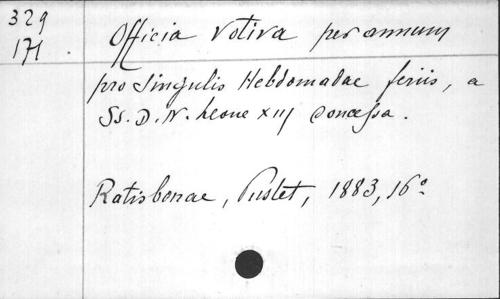 329
171.
Officia votiva per annum
pro singulis Hebdomadae feriis, a
Ss. D. N. Leone XIIJ concessa.
Ratisbonae, Pustet, 1883, 16°